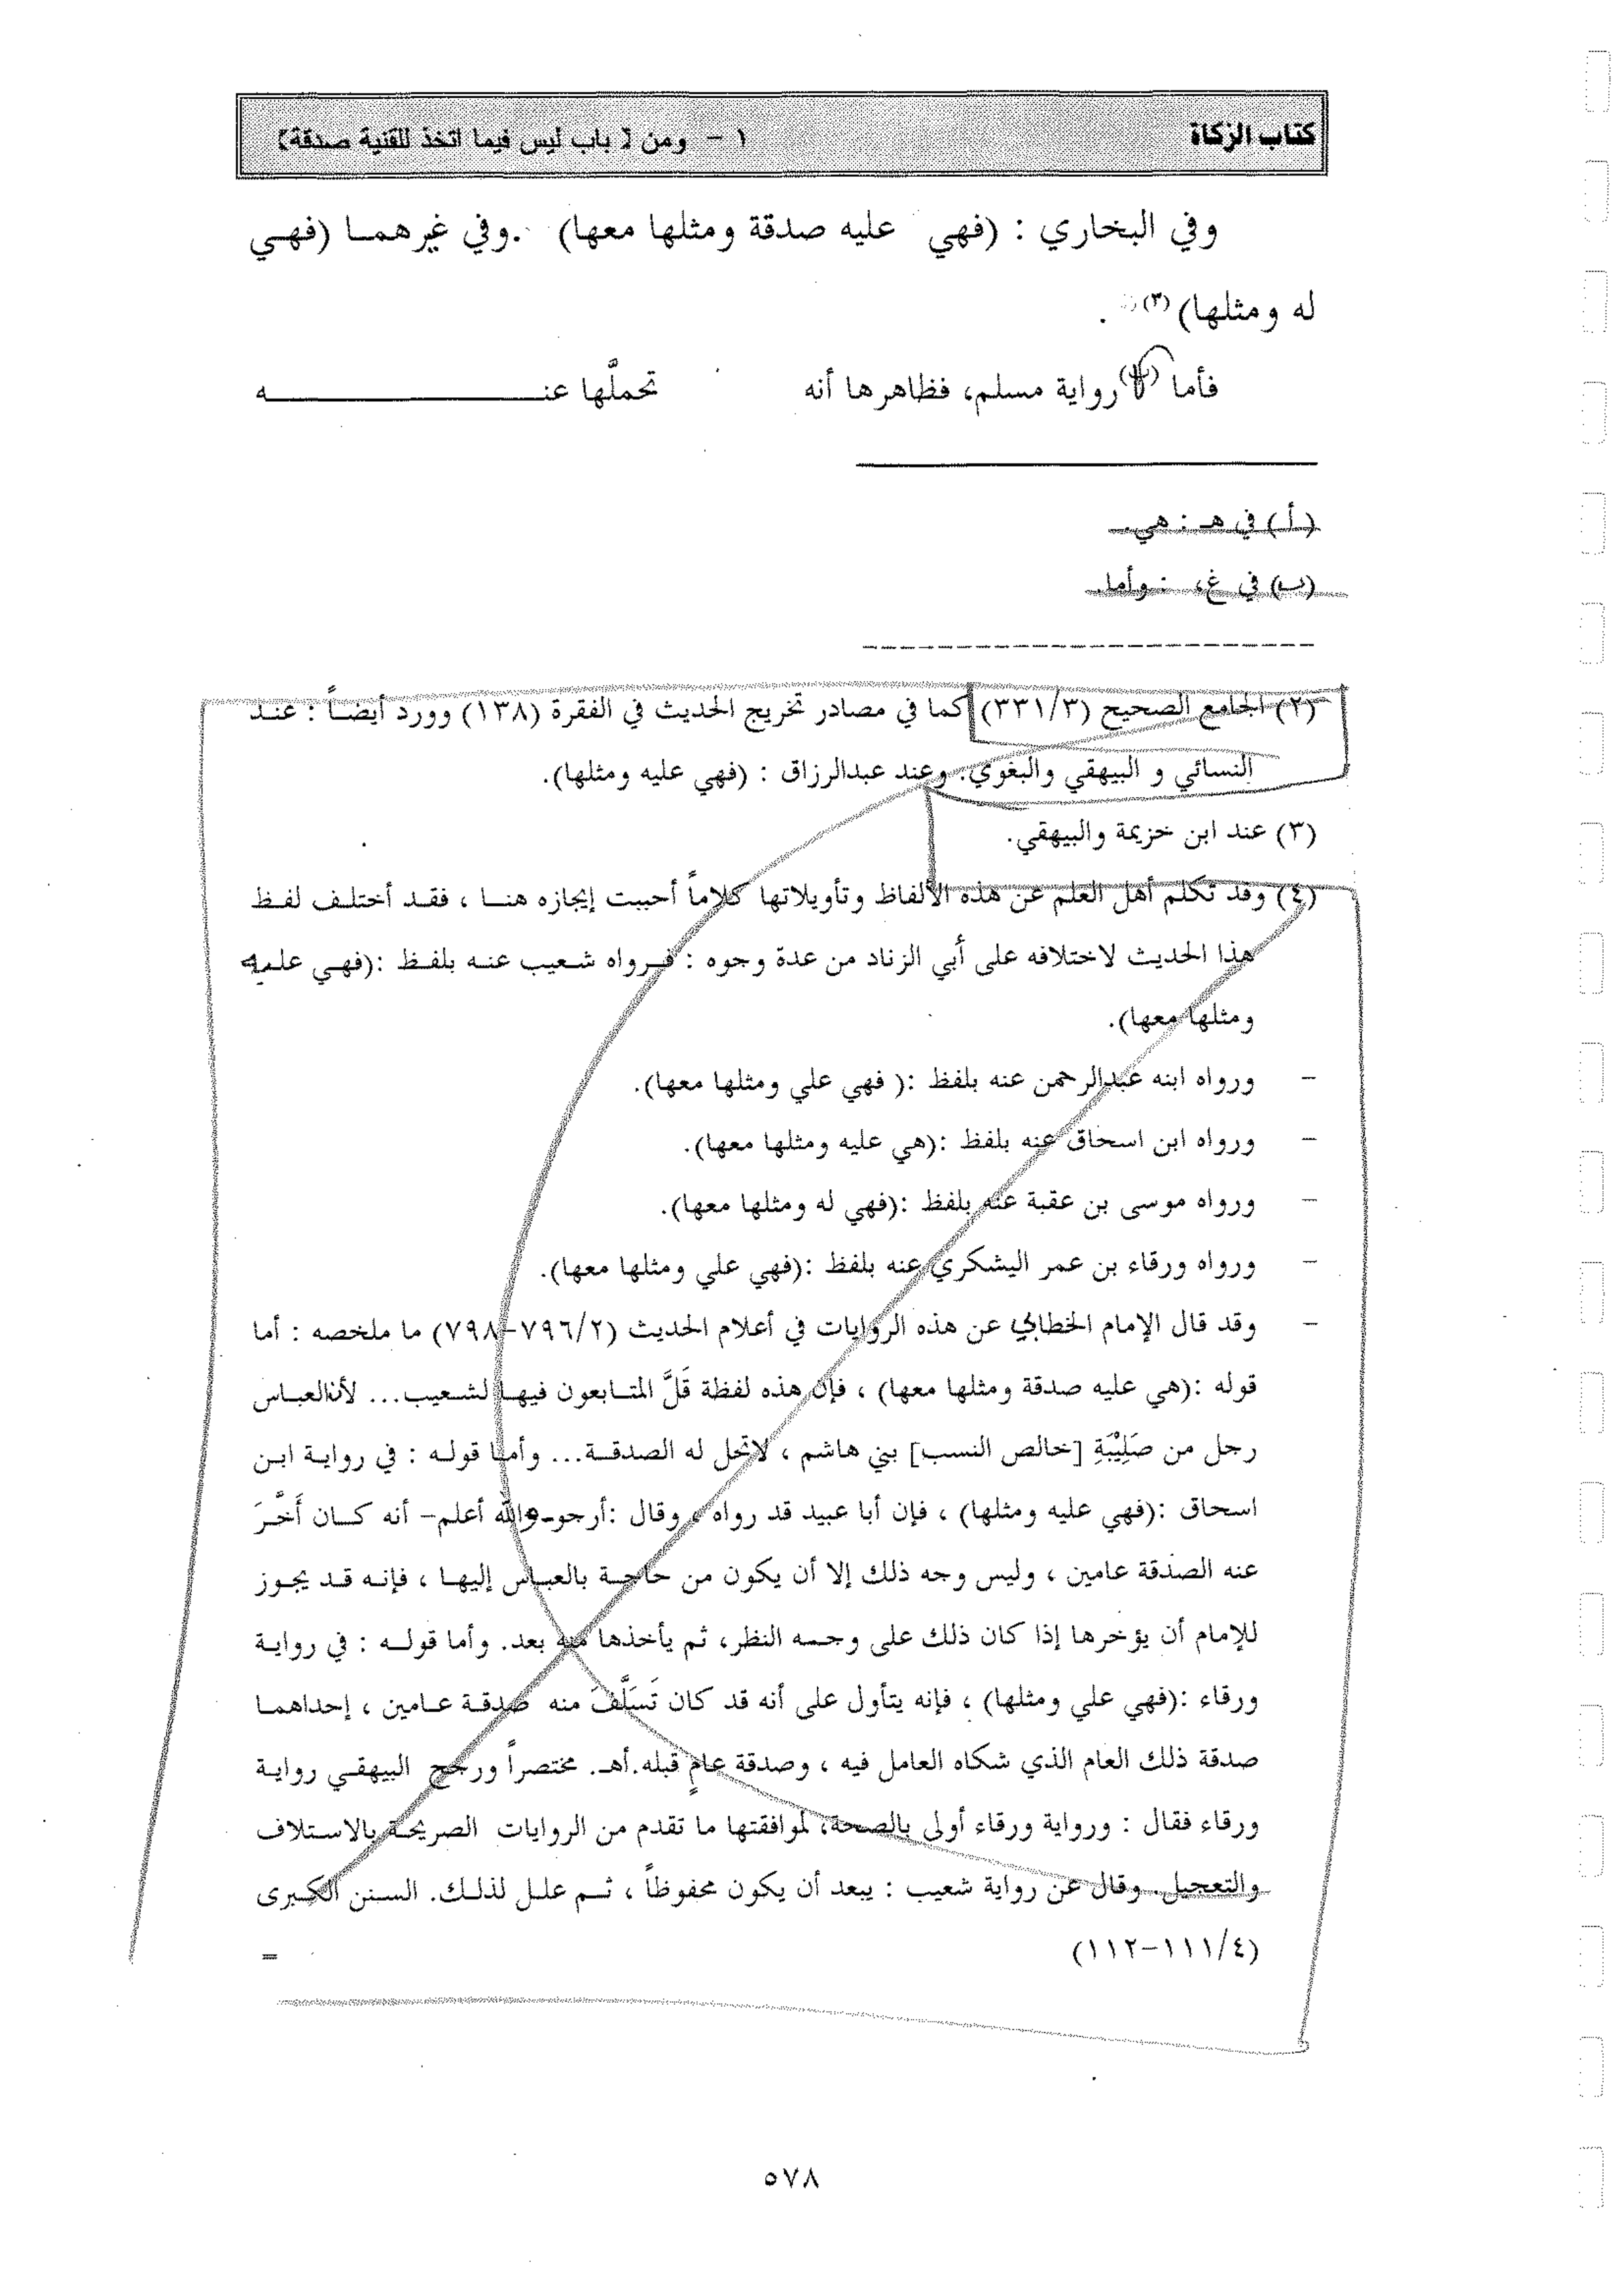 كتاب الزكاة
١ - ومن [ باب ليس فيما اتخذ للقنية صدقة]
وفي البخاري : (فهي عليه صدقة ومثلها معها) .وفي غيرهما (فهي
له ومثلها) (٣) .
فأما رواية مسلم، فظاهرها أنه تحملّها عنـــه
(أ) في هـ : هي.
(ب) في غ، : وأما.
(٢) الجامع الصحيح (٣٣١/٣) كما في مصادر تخريج الحديث في الفقرة (١٣٨) وورد أيضاً : عند
النسائي و البيهقي والبغوي. وعند عبدالرزاق : (فهي عليه ومثلها).
(٣) عند ابن خزيمة والبيهقي.
(٤) وقد تكلم أهل العلم عن هذه الألفاظ وتأويلاتها كلاماً أحببت إيجازه هنا ، فقد أختلف لفظ
هذا الحديث لاختلافه على أبي الزناد من عدة وجوه : فرواه شعيب عنه بلفظ :(فهي عليه
ومثلها معها).
- ورواه ابنه عبدالرحمن عنه بلفظ :( فهي علي ومثلها معها).
- ورواه ابن اسحاق عنه بلفظ :(هي عليه ومثلها معها).
- ورواه موسى بن عقبة عنه بلفظ :(فهي له ومثلها معها).
- ورواه ورقاء بن عمر اليشكري عنه بلفظ :(فهي علي ومثلها معها).
- وقد قال الإمام الخطابي عن هذه الروايات في أعلام الحديث (٧٩٦/٢-٧٩٨) ما ملخصه : أما
قوله :(هي عليه صدقة ومثلها معها) ، فإن هذه لفظة قَلَّ المتابعون فيها لشعيب... لأن العباس
رجل من صَلِيْبَةِ [خالص النسب] بني هاشم ، لاتحل له الصدقة... وأما قوله : في رواية ابن
اسحاق :(فهي عليه ومثلها) ، فإن أبا عبيد قد رواه ، وقال :أرجو-والله أعلم- أنه كان أَخَّرَ
عنه الصدقة عامين ، وليس وجه ذلك إلا أن يكون من حاجة بالعباس إليها ، فإنه قد يجوز
للإمام أن يؤخرها إذا كان ذلك على وجه النظر، ثم يأخذها منه بعد. وأما قوله : في رواية
ورقاء :(فهي علي ومثلها) ، فإنه يتأول على أنه قد كان تَسَلَّفَ منه صدقة عامين ، إحداهما
صدقة ذلك العام الذي شكاه العامل فيه ، وصدقة عامٍ قبله.أهـ. مختصراً ورجح البيهقي رواية
ورقاء فقال : ورواية ورقاء أولى بالصحة، لموافقتها ما تقدم من الروايات الصريحة بالاستلاف
والتعجيل. وقال عن رواية شعيب : يبعد أن يكون محفوظاً ، ثم علل لذلك. السنن الكبرى
(١١١/٤-١١٢) =
٥٧٨